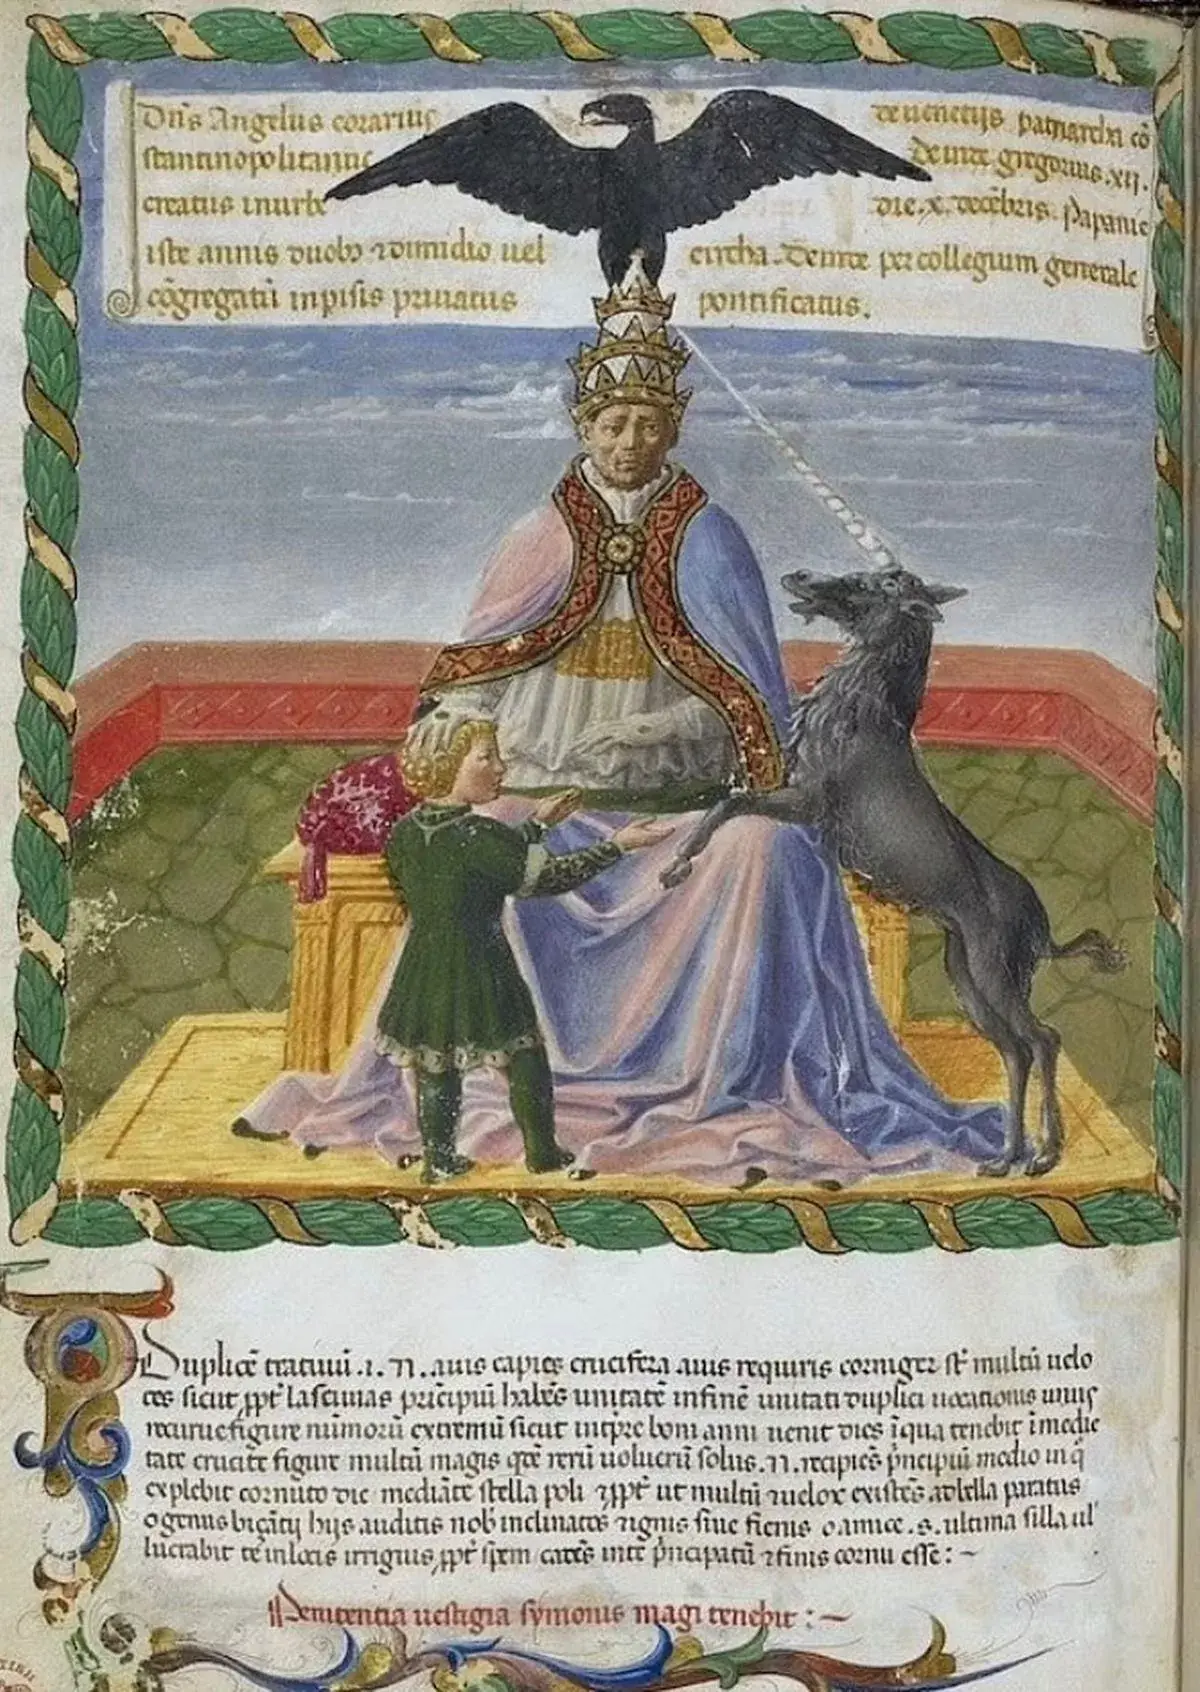 Dn̄s Angelus corarius de uenetijs patriarcha cō
stantinopolitanus Deinde gregorius .xij.
creatus in urbe die .x. decēbris. Papauit
iste annis duobȝ ⁊ dimidio uel circha. Deinde per collegium generale
cōgregatū in pisis priuatus pontificatus.
Duplicē tratuum .i. 71. auis capies crucifera auis requiris corniger multū uelo
ces sicut ppt lasciuias prīcipiū habēs unitatē in finē unitati duplici uocationis unius
figure numorū extremū sicut in tpre boni anni uenit dies ī qua tenebit ī medie
tate cruciatē figure multū magis rerū uolucrū solus .71. recipiēs prīcipiū medio in q̄
explebit cornuto die mediāte stella poli ⁊ ppt ut multū uelox existēs ad bella paratus
o genus hijs auditis nob inclinates ⁊ ignis siue ficnus o amice .s. ultima silla
luctabit te in locis irriguis ppt spem prīcipatū ⁊ finis cornu esse : ~
Penitentia uestigia symonis magi tenebit : ~